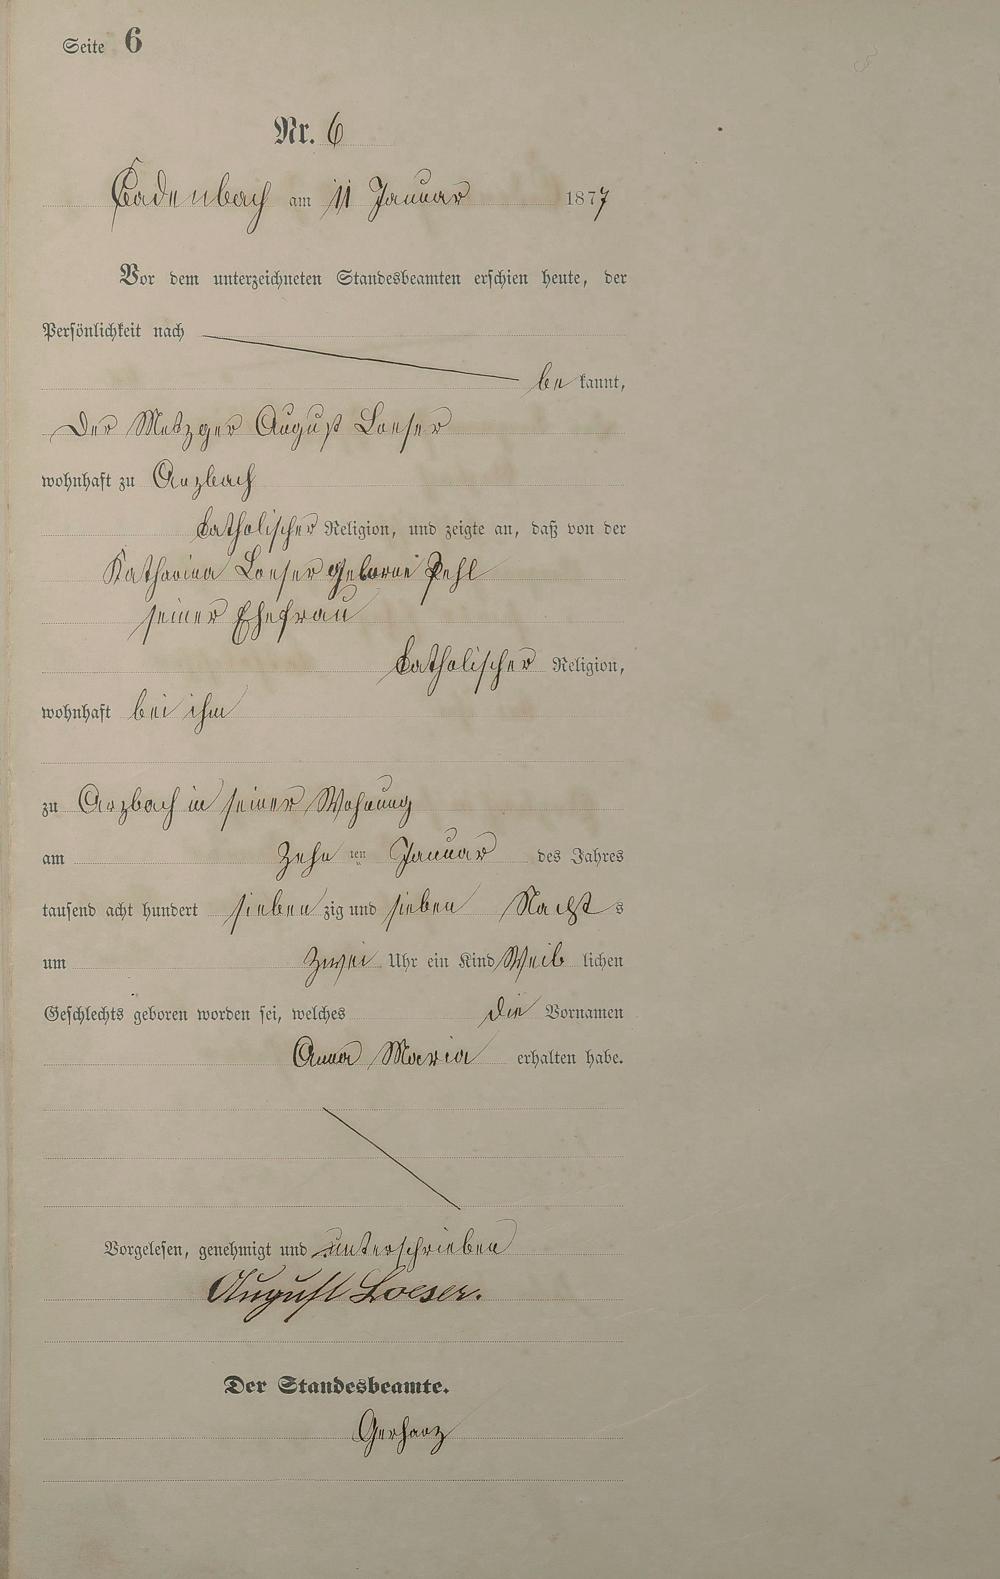 Seite 6
Nr. 6
Cadenbach am 11 Januar 1877
Vor dem unterzeichneten Standesbeamten erschien heute, der
Persönlichkeit nach
be kannt,
Der Metzger August Loeser
wohnhaft zu Arzbach
katholischer Religion, und zeigte an, daß von der
Katharina Loeser geborne Pehl
seiner Ehefrau
katholischer Religion,
wohnhaft bei ihm
zu Arzbach in seiner Wohnung
am Zehn ten Januar des Jahres
tausend acht hundert sieben zig und sieben Nacht s
um zwei Uhr ein Kind Weib lichen
Geschlechts geboren worden sei, welches die Vornamen
Anna Maria erhalten habe.
Vorgelesen, genehmigt und unterschrieben
August Loeser.
Der Standesbeamte.
Gerharz